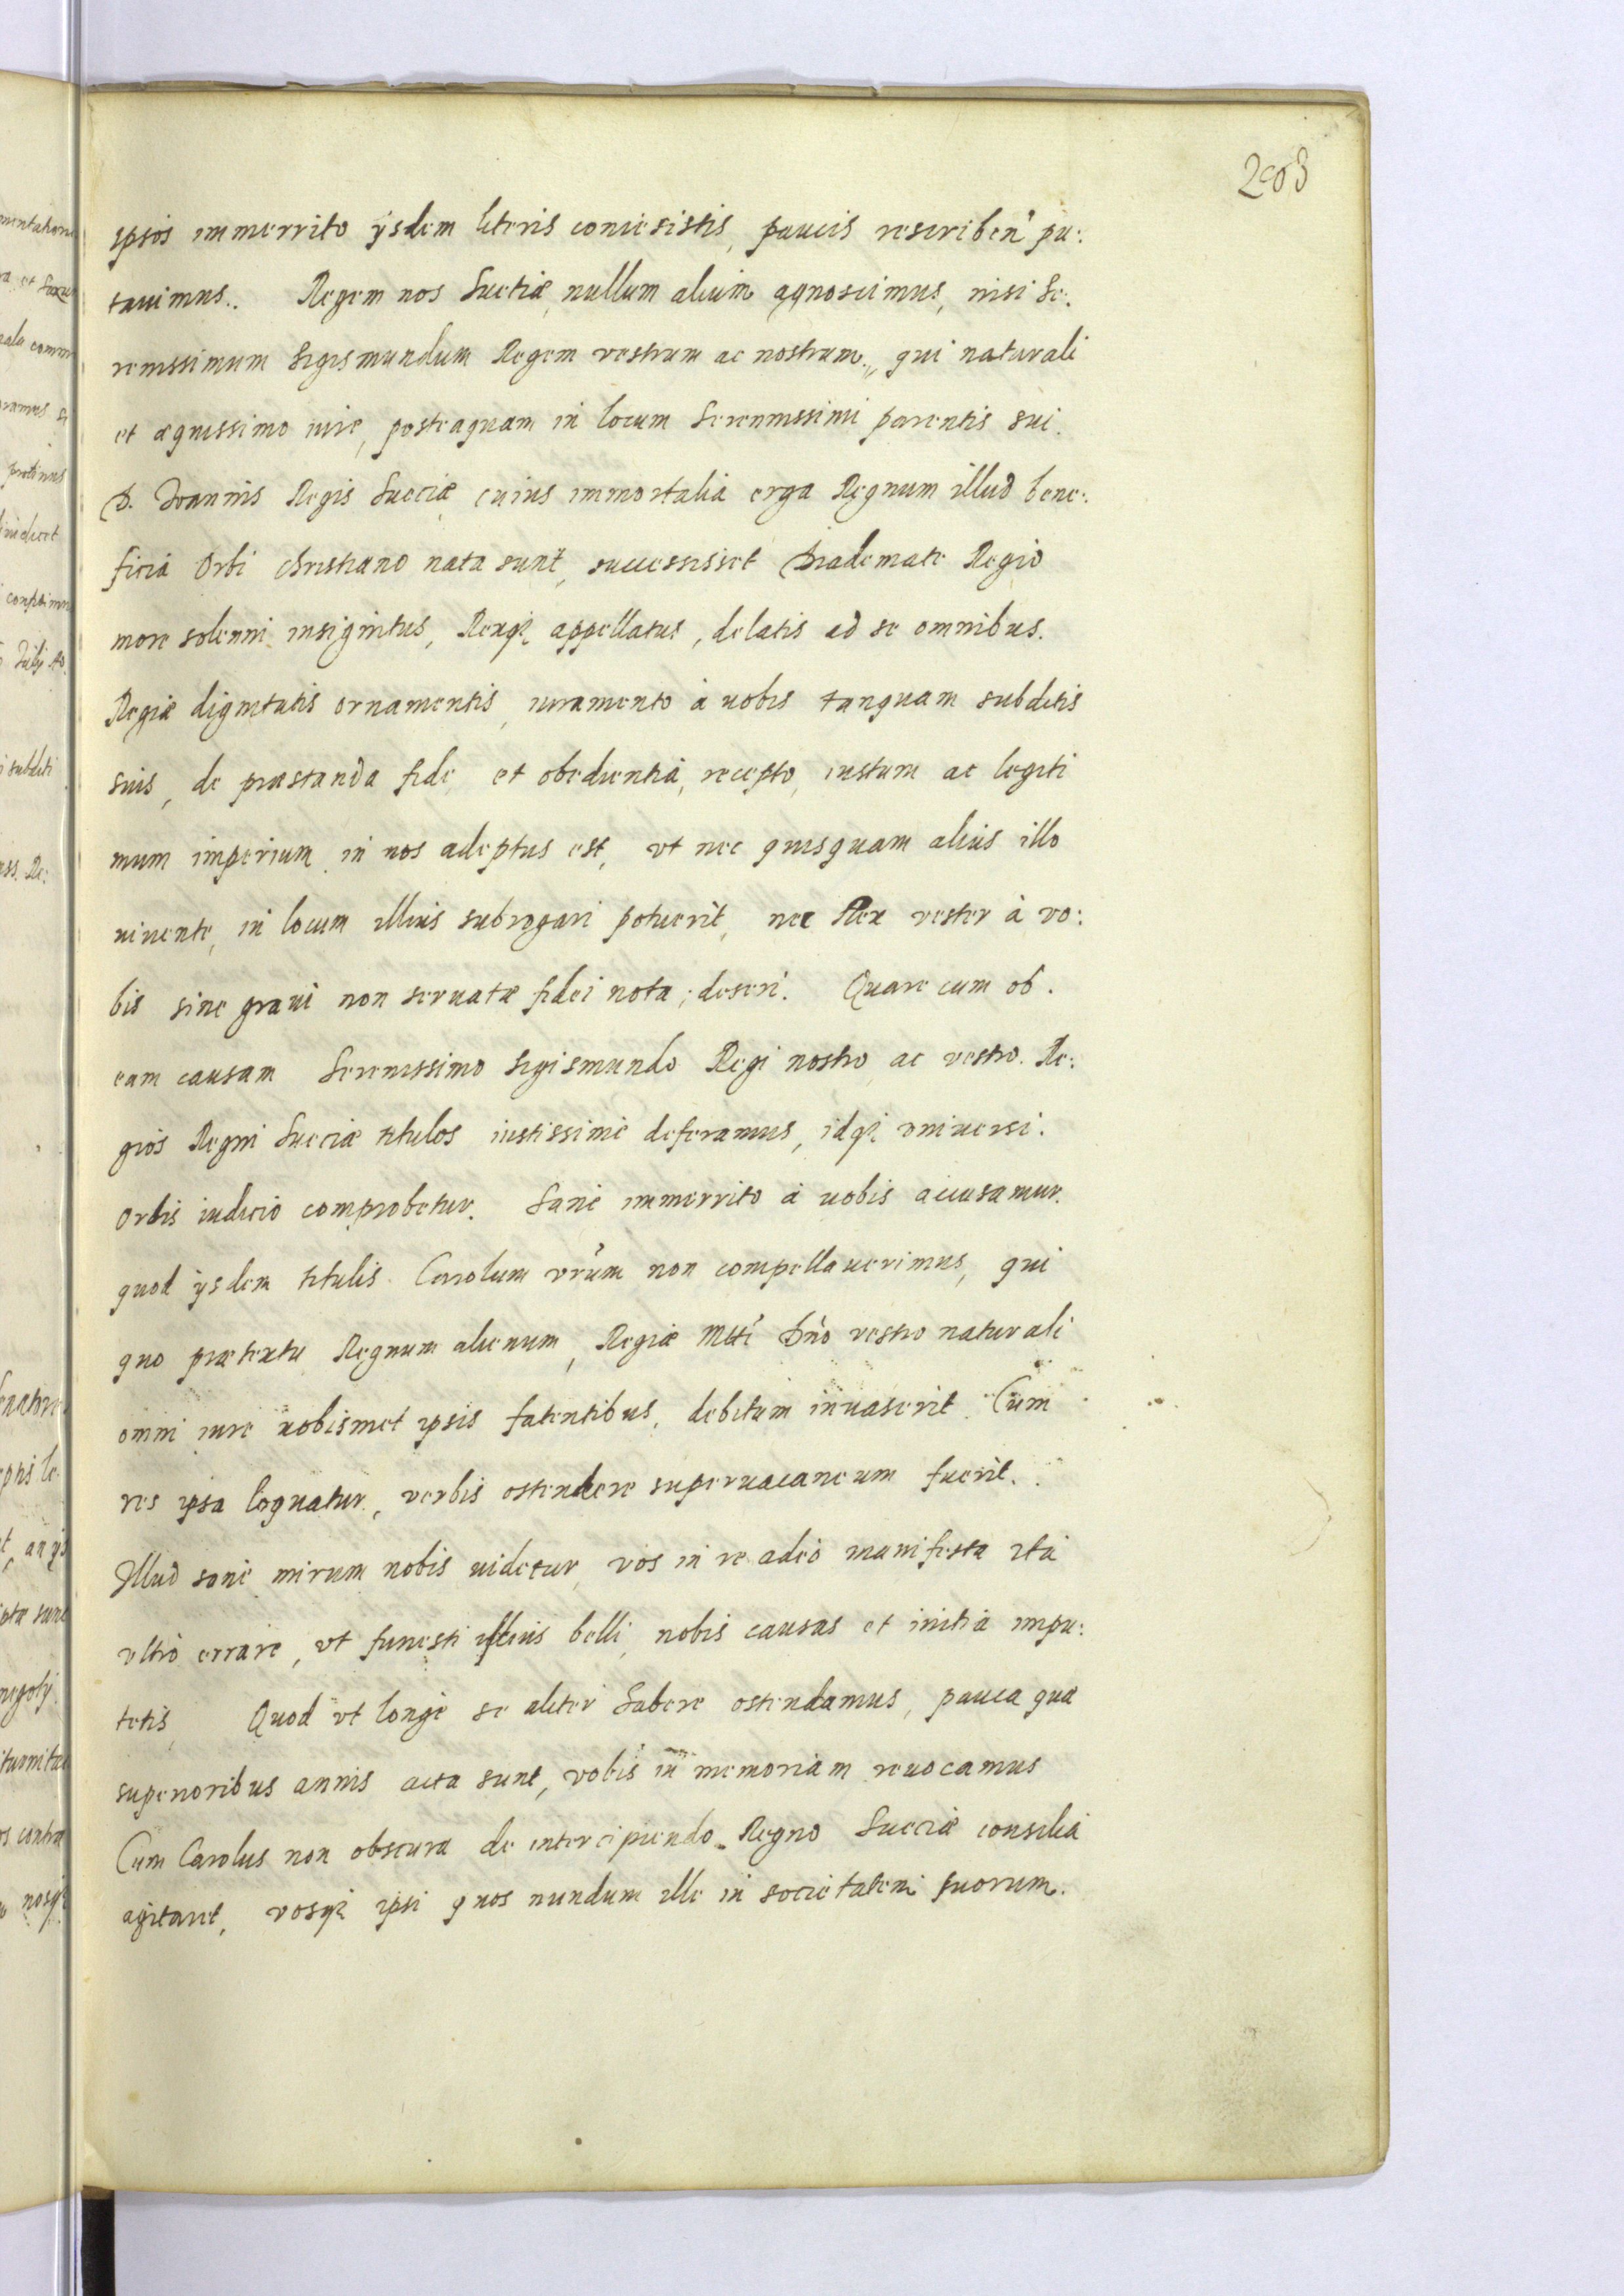 203
ipsos immerrito ijsdem literis coniecistis, paucis rescriben̓ pu:
tauimus.. Regem nos Suetiæ, nullum alium agnoscimus, nisi Se:
renissimum Sigismundum Regem vestrum ac nostrum., qui naturali
et æquissimo iure, posteaquam in locum Serennissimi parentis sui.
D. Ioannis Regis Sueciæ cuius immortalia erga Regnum illud bene:
ficia Orbi christiano nata sunt, successisset Diademate Regio
more solenni insignitus, Rexq̃ appellatus, delatis ad se omnibus.
Regiæ dignitatis ornamentis, iuramento à uobis tanquam subditis
suis, de præstanda fide et obedientia, recepto, iustum ac legiti
mum imperium in nos adeptus est, vt nec quisquam alius illo
uiuente, in locum illius subrogari potuerit, nec Rex vester à vo:
bis sine graui non seruatæ fidei nota, deseri. Quare cum ob.
eam causam Serenissimo Sigismundo Regi nostro ac vestro. Re:
gios Regni Sueciæ titulos iustissimè deferamus, idq̃ vniuersi.
Orbis iudicio comprobetur. Sanè immerrito à uobis accusamur.
quod ijsdem titulis Carolum vr̃um non compellauerimus, qui
quo prætextu Regnum alienum, Regiæ Mtti Dño vestro naturali
omni iure uobismet ipsis fatentibus, debitum inuaserit. Cum
res ipsa loquatur, verbis ostendere superuacaneum fuerit.
Illud sanè mirum nobis uidetur, vos in re adeò manifesta ità
vltrò errare, vt funesti illius belli, nobis causas et initia impu:
tetis, Quod vt longè se aliter habere ostendamus, pauca quæ
superioribus annis acta sunt, vobis in memoriam reuocamus
Cum Carolus non obscura de intercipiendo Regno Sueciæ consilia
agitaret, vosq̃ ipsi quos nundum ille in societatem suorum.